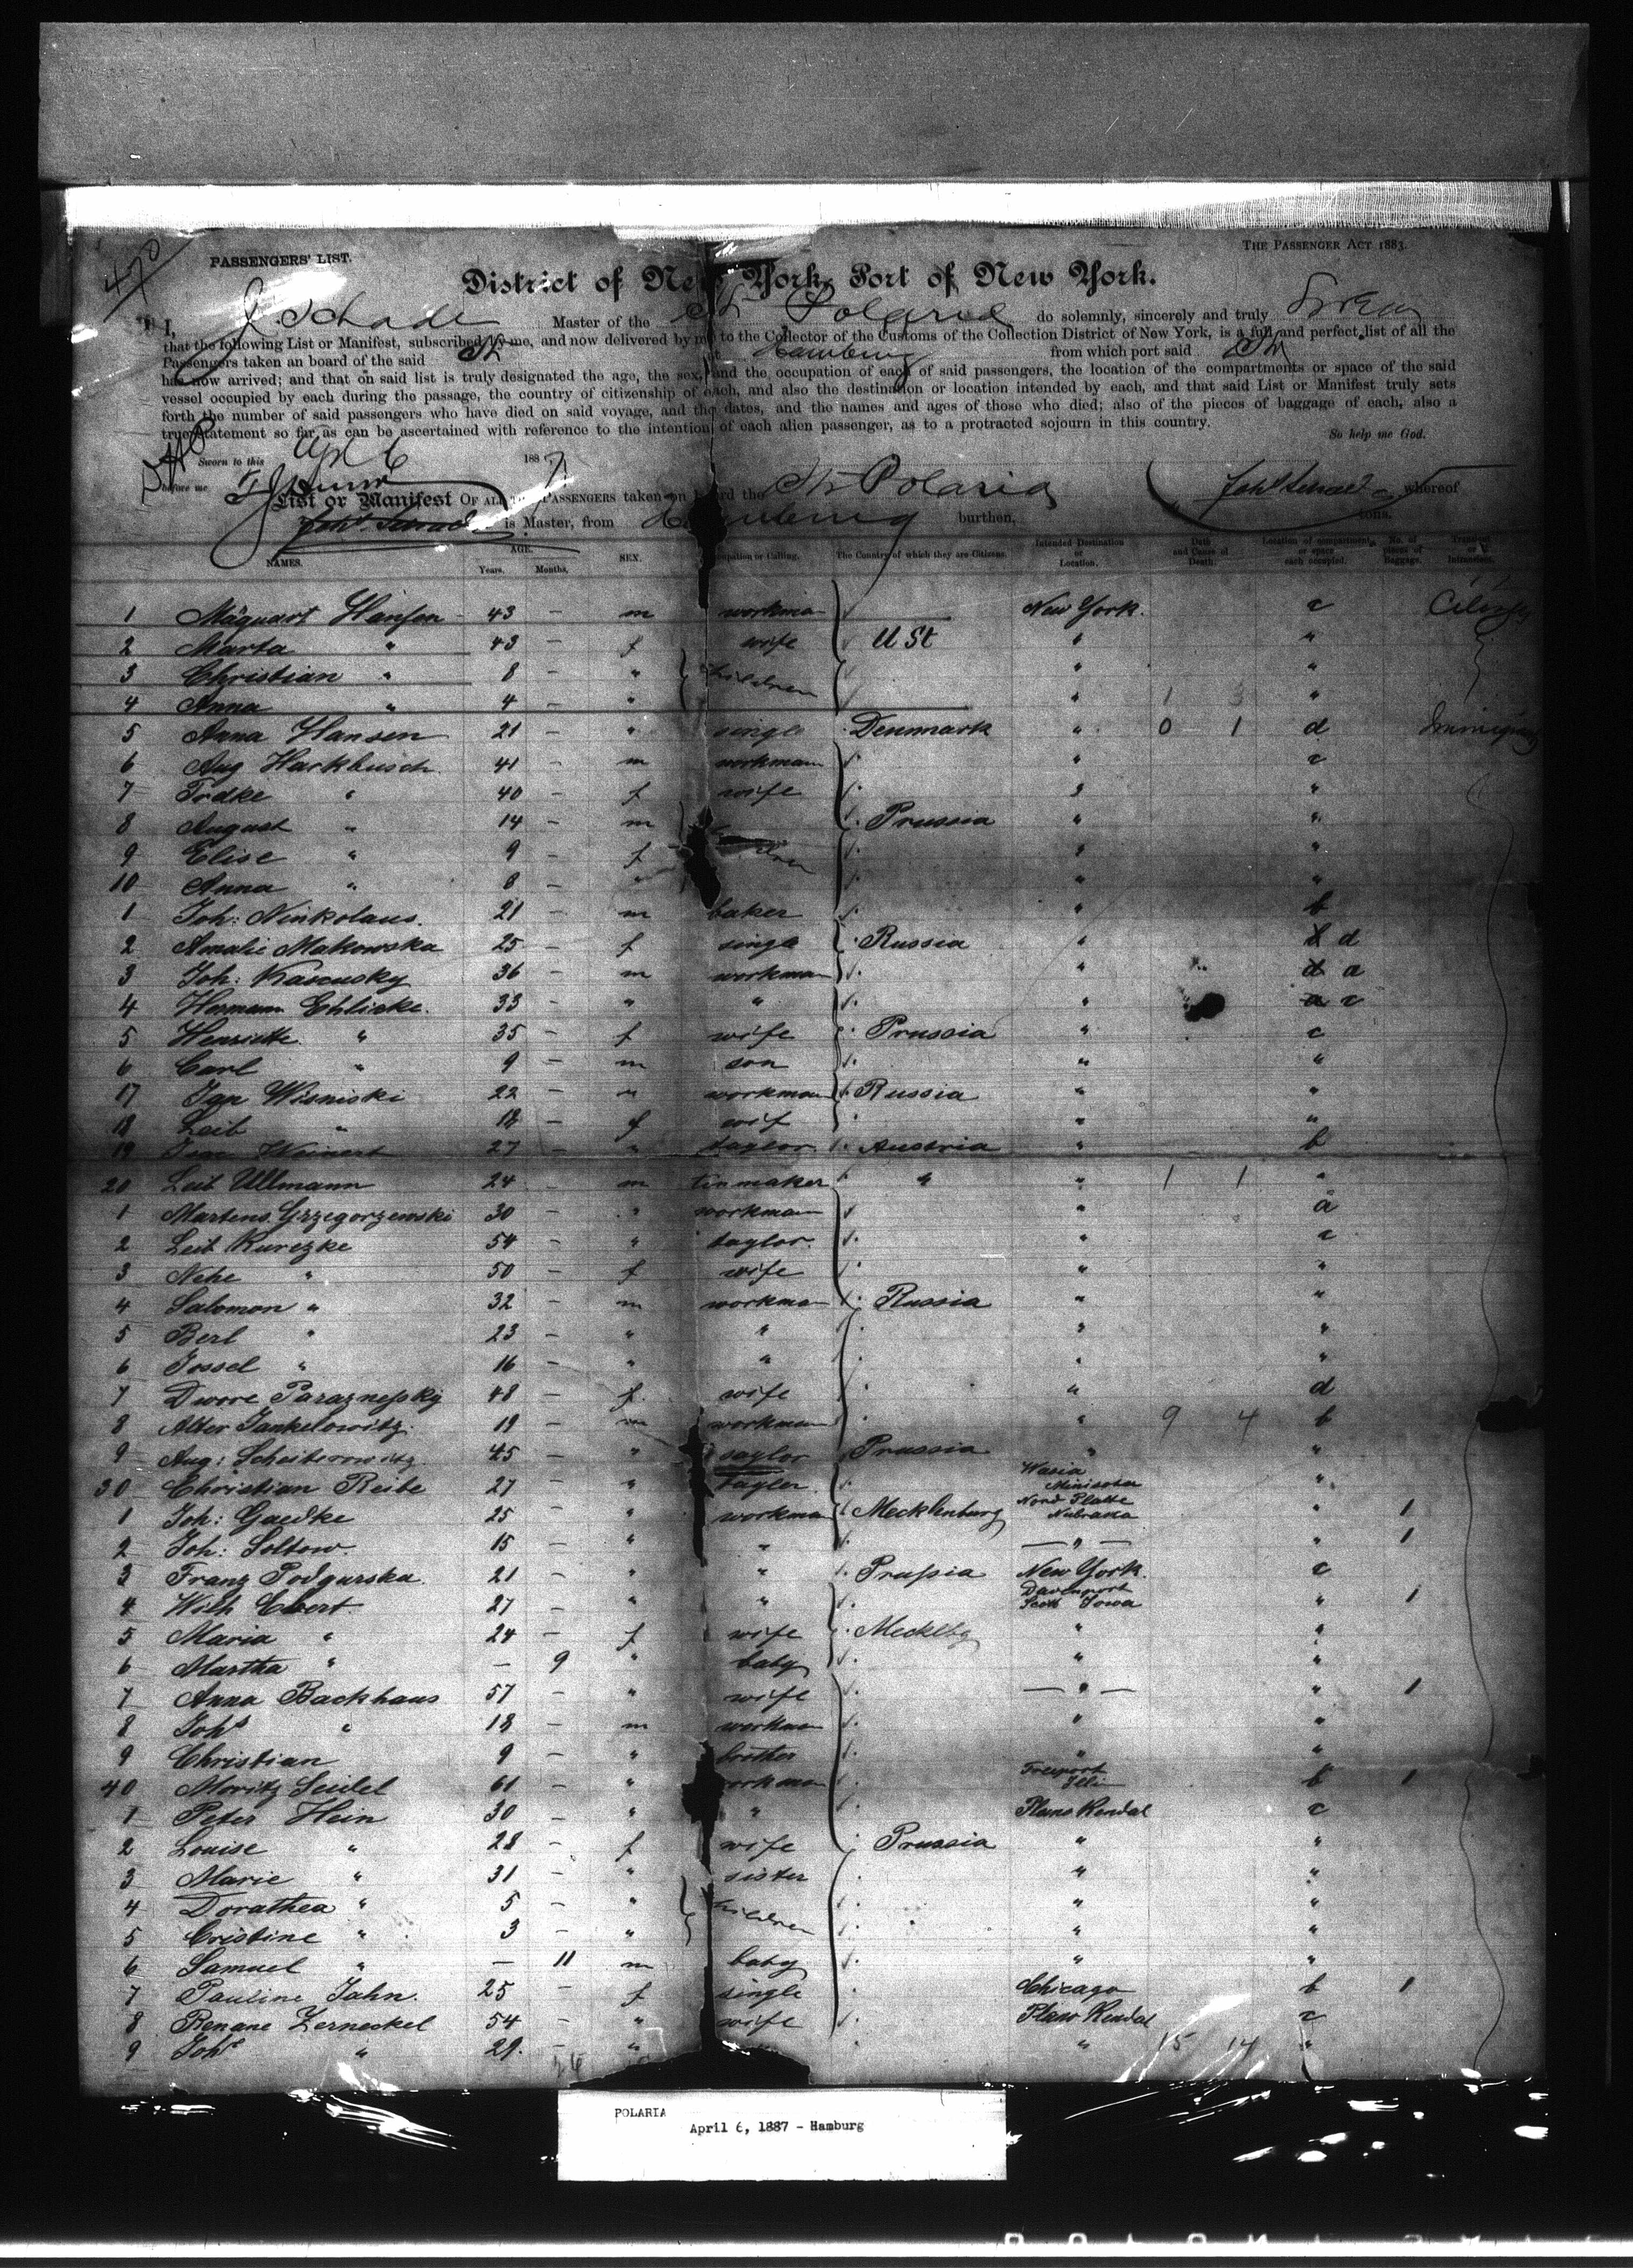 470
PASSENGERS' LIST.
THE PASSENGER ACT 1883.
District of New York, Port of New York.
I, J. Schade Master of the Str Polaria do solemnly, sincerely and truly Swear
that the following List or Manifest, subscribed by me, and now delivered by me to the Collector of the Customs of the Collection District of New York, is a full and perfect list of all the
Passengers taken on board of the said Str at Hamburg from which port said Str
has now arrived; and that on said list is truly designated the age, the sex, and the occupation of each of said passengers, the location of the compartments or space of the said
vessel occupied by each during the passage, the country of citizenship of each, and also the destination or location intended by each, and that said List or Manifest truly sets
forth the number of said passengers who have died on said voyage, and the dates, and the names and ages of those who died; also of the pieces of baggage of each, also a
true statement so far as can be ascertained with reference to the intention of each alien passenger, as to a protracted sojourn in this country.
So help me God.
Sworn to this Apl 6 1887
before me
List or Manifest OF ALL THE PASSENGERS taken on board the Str Polaria whereof
is Master, from Hamburg burthen, tons.
NAMES. AGE. Years. Months. SEX. Occupation or Calling. The Country of which they are Citizens. Intended Destination or Location. Date and Cause of Death. Location of compartment or space each occupied. No. of pieces of Baggage. Transient
1 Mäquart Hansen 43 - m workman New York. c
2 Marta " 43 - f wife U St " "
3 Christian " 8 - " children " "
4 Anna " 4 - " " 1 3 "
5 Anna Hansen 21 - " single Denmark " 0 1 d
6 Aug Hackbusch 41 - m workman " c
7 " 40 - f wife " "
8 August " 14 - m Prussia " "
9 Elise " 9 - f " "
10 Anna " 8 - " " "
1 Joh: Ninkolaus. 21 - m baker " b
2 Amalie Makowska 25 - f single Russia " d
3 Joh: Kascusky 36 - m workman " a
4 Hermann Ehlicke. 33 - " " " c
5 Henriette " 35 - f wife Prussia " c
6 Carl " 9 - m son " "
17 Jan Wisniski 22 - " workman Russia " "
18 Leib " 18 - f wife " "
19 Weinert 27 - " taylor Austria " b
20 Leib Ullmann 24 - m tinmaker " " 1 1 "
1 Martens Grzegorzewski 30 - " workman " a
2 Leib Kurezke 54 - " taylor. " c
3 Nehe " 50 - f wife " "
4 Salomon " 32 - m workman Russia " "
5 Berl " 23 - " " " "
6 Jossel " 16 - " " " "
7 Dwore Paraznefsky 48 - f wife " d
8 Alter Jankelowitz. 19 - m workman " 9 4 b
9 Aug: Scheiterowitz. 45 - " taylor Prussia " "
30 Christian Reibe 27 - " tayler. Minisota "
1 Joh: Gaedke 25 - " workman Mecklenburg Nord Platte Nebraska " 1
2 Joh: Soltow. 15 - " " — " — " 1
3 Franz Podgurska. 21 - " " Prussia New York. c
4 Wilh Ebert. 27 - " " Davenport Scott Iowa " 1
5 Maria " 24 - f wife Mecklbg " "
6 Martha " - 9 " baby " "
7 Anna Backhaus 57 - " wife — " — " 1
8 Johs " 18 - m workman " "
9 Christian 9 - " brother " "
40 Moritz Seidel 61 - " workman Freeport Illi b 1
1 Peter Hein 30 - " " Plano Kendal c
2 Louise " 28 - f wife Prussia " "
3 Marie " 31 - " sister " "
4 Dorathea " 5 - " children " "
5 Cristine " 3 - " " "
6 Samuel " - 11 m baby " "
7 Pauline Jahn. 25 - f single Chicago b 1
8 Renane Zerneckel 54 - " wife Plaw Kendal c
9 Johs " 29. " " 15 14 "
POLARIA
April 6, 1887 - Hamburg